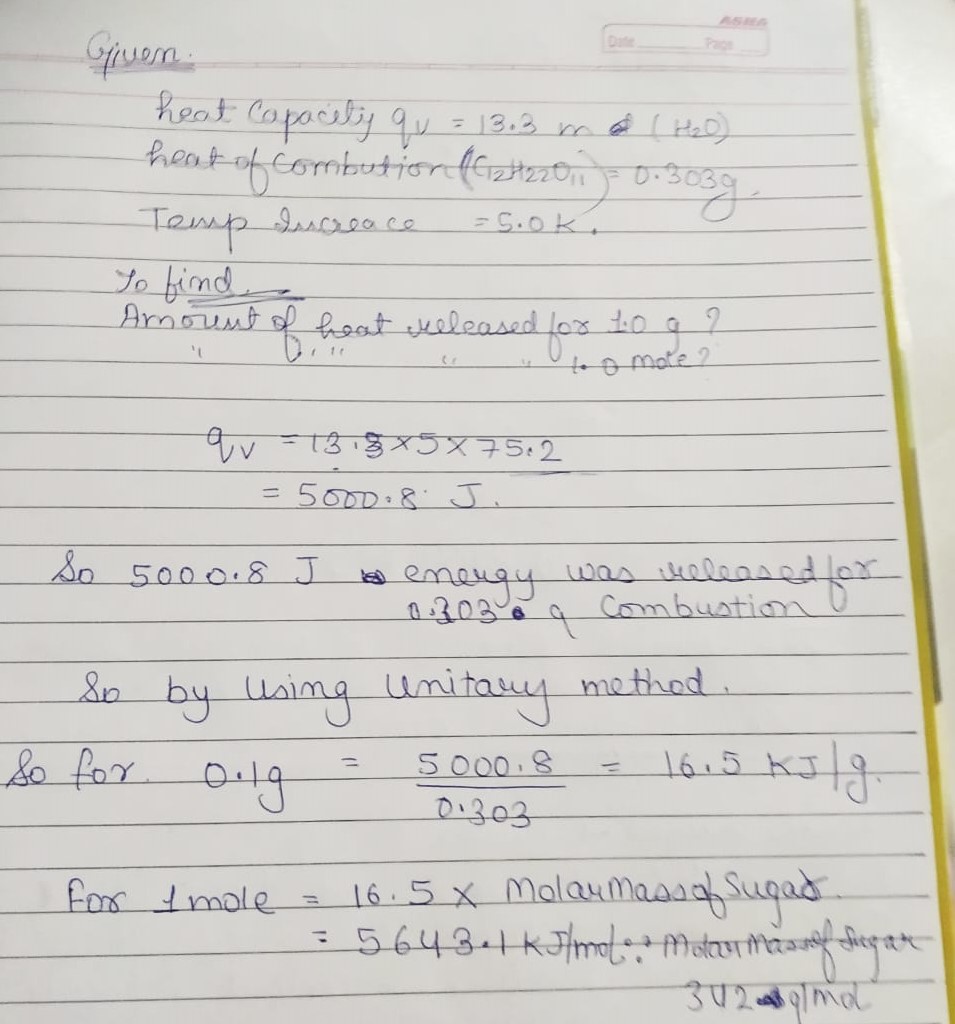 ASMA
Date Page
Given.
heat Capacity qv = 13.3 m (H2O)
heat of Combution (C12H22O11) = 0.303g.
Temp Increace = 5.0 K.
To find
Amount of heat released for 1.0 g ?
" " " " " 1.0 mole ?
qv = 13.3 x 5 x 75.2
= 5000.8 J.
So 5000.8 J energy was released for
0.303 g Combustion
So by Using Unitary method.
So for 0.1g = 5000.8 / 0.303 = 16.5 KJ/g.
For 1 mole = 16.5 x Molar Mass of Sugar.
= 5643.1 KJ/mol ∵ Molar Mass of Sugar
342 g/mol